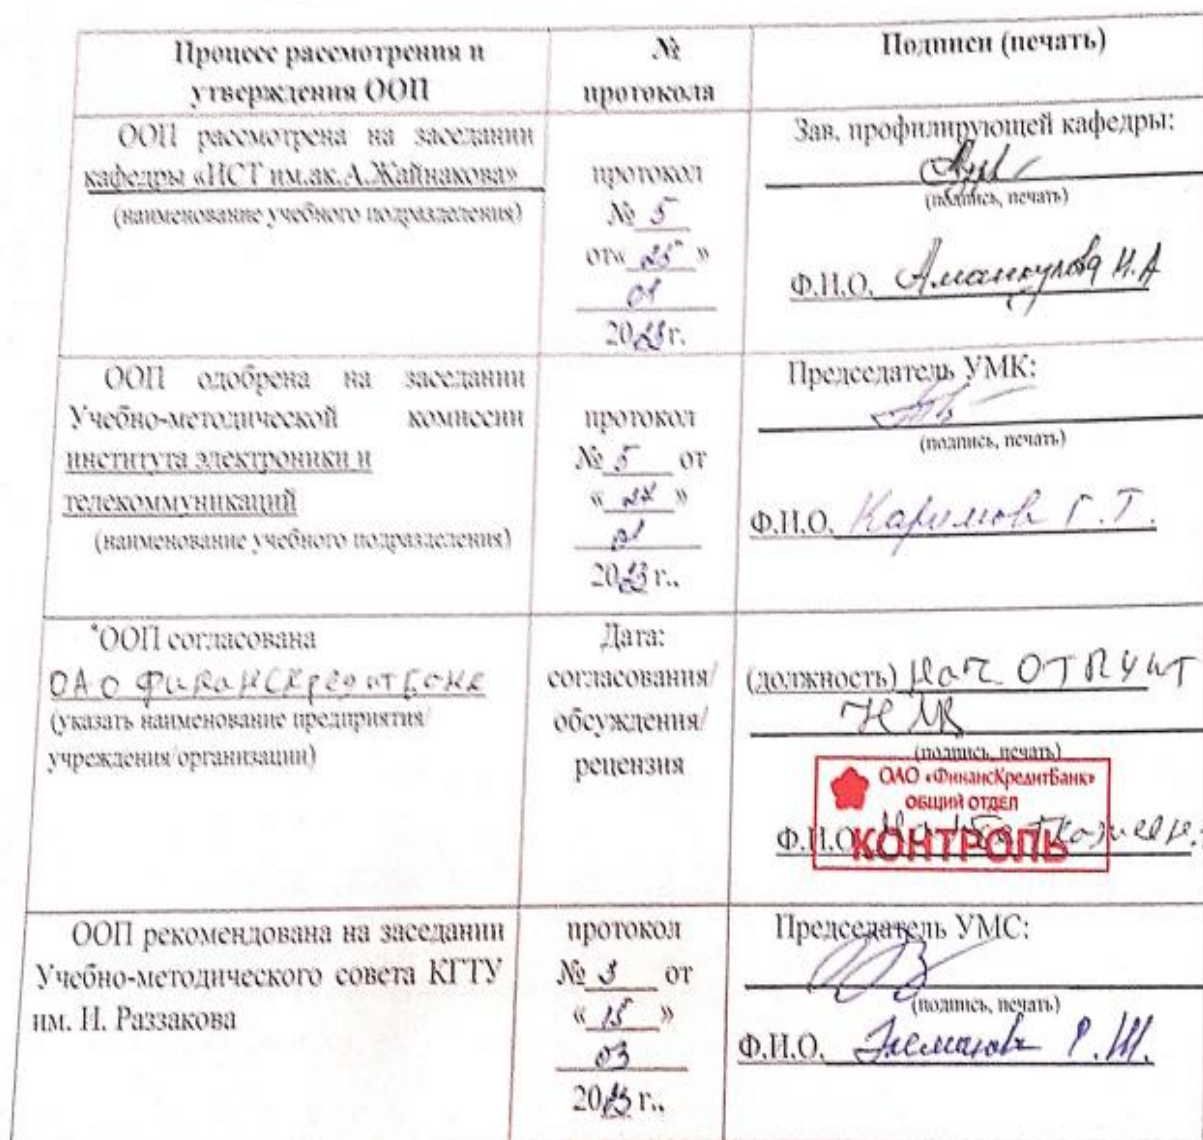 Процесс рассмотрения и
утверждения ООП
№
протокола
Подписи (печать)
ООП рассмотрена на заседании
кафедры «ИСТ им.ак.А.Жайнакова»
(наименование учебного подразделения)
протокол
№ 5
от« 25 »
01
2023г.
Зав. профилирующей кафедры:
(подпись, печать)
Ф.И.О. Аманкулова Н.А
ООП одобрена на заседании
Учебно-методической комиссии
института электроники и
телекоммуникаций
(наименование учебного подразделения)
протокол
№ 5 от
« 27 »
01
2023 г.,
Председатель УМК:
(подпись, печать)
Ф.И.О. Каримов Г.Т.
*ООП согласована
ОАО ФинансКредитБанк
(указать наименование предприятия/
учреждения/организации)
Дата:
согласования/
обсуждения/
рецензия
(должность) Нач
(подпись, печать)
ОАО «ФинансКредитБанк»
ОБЩИЙ ОТДЕЛ
Ф.И.О.
КОНТРОЛЬ
ООП рекомендована на заседании
Учебно-методического совета КГТУ
им. И. Раззакова
протокол
№ 3 от
« 15 »
03
2023 г.,
Председатель УМС:
(подпись, печать)
Ф.И.О. Р.Ш.